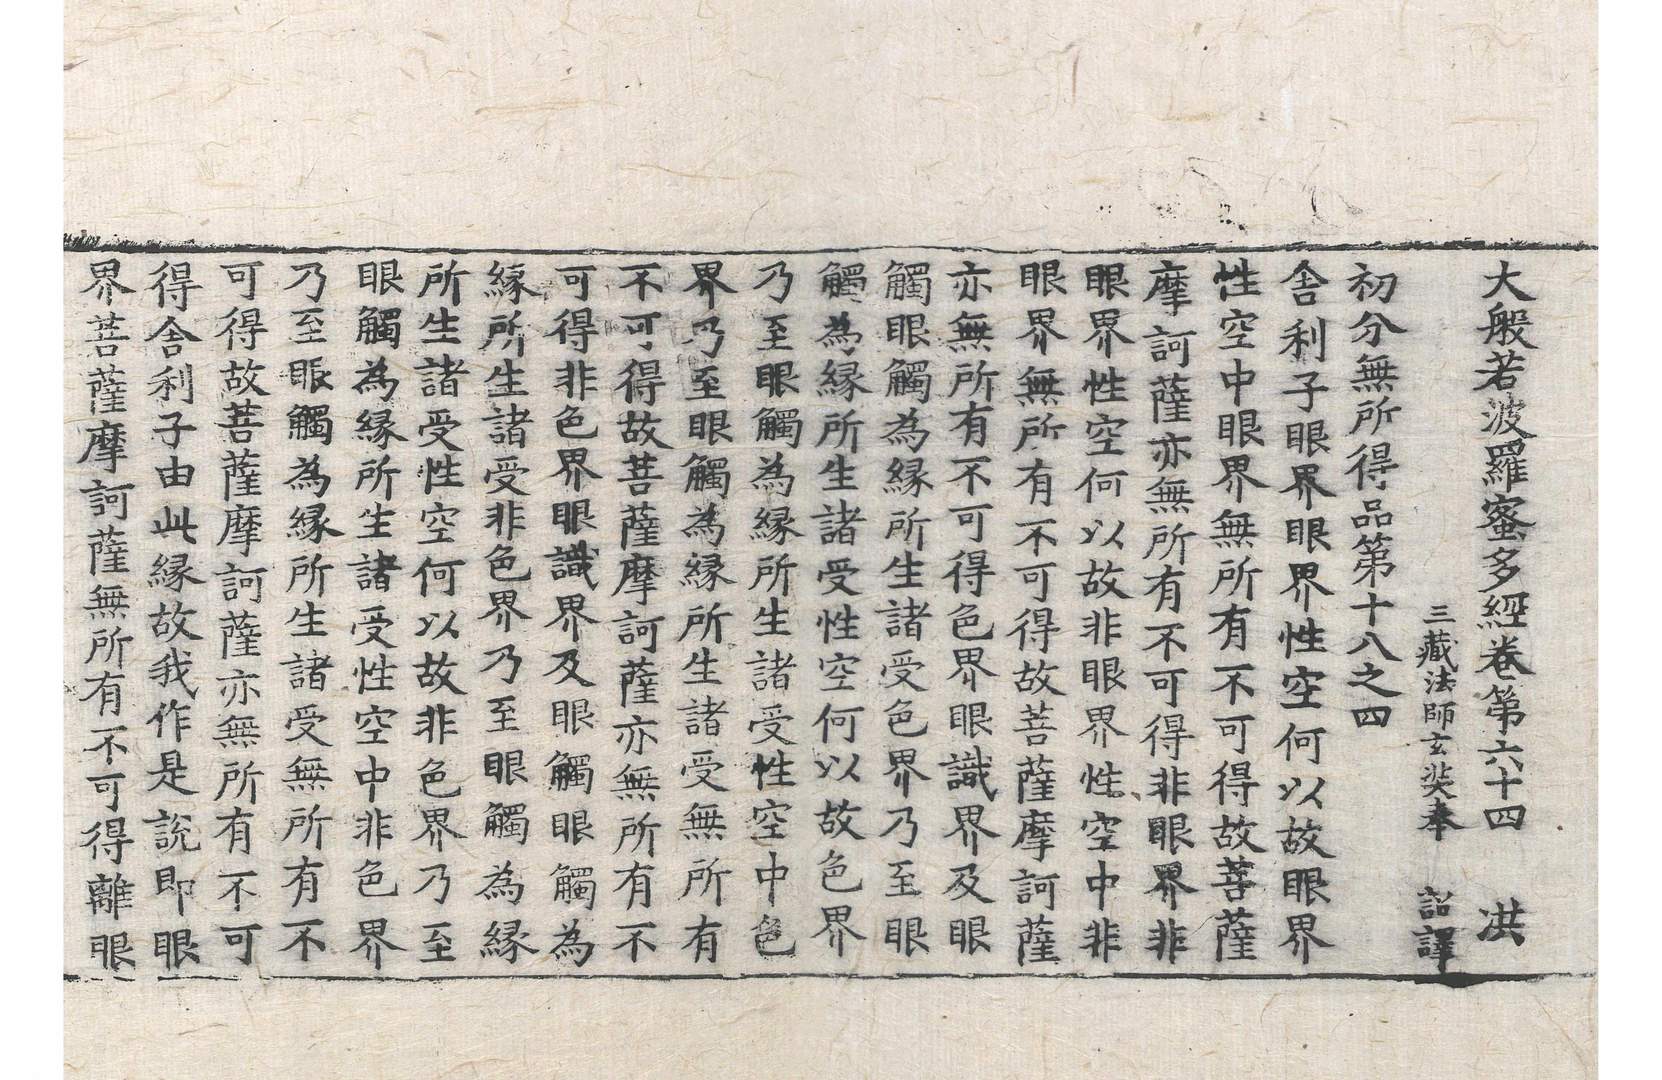 大般若波羅蜜多經卷第六十四 洪
三藏法師玄奘奉 詔譯
初分無所得品第十八之四
舍利子眼界眼界性空何以故眼界
性空中眼界無所有不可得故菩薩
摩訶薩亦無所有不可得非眼界非
眼界性空何以故非眼界性空中非
眼界無所有不可得故菩薩摩訶薩
亦無所有不可得色界眼識界及眼
觸眼觸為緣所生諸受色界乃至眼
觸為緣所生諸受性空何以故色界
乃至眼觸為緣所生諸受性空中色
界乃至眼觸為緣所生諸受無所有
不可得故菩薩摩訶薩亦無所有不
可得非色界眼識界及眼觸眼觸為
緣所生諸受非色界乃至眼觸為緣
所生諸受性空何以故非色界乃至
眼觸為緣所生諸受性空中非色界
乃至眼觸為緣所生諸受無所有不
可得故菩薩摩訶薩亦無所有不可
得舍利子由此緣故我作是說即眼
界菩薩摩訶薩無所有不可得離眼